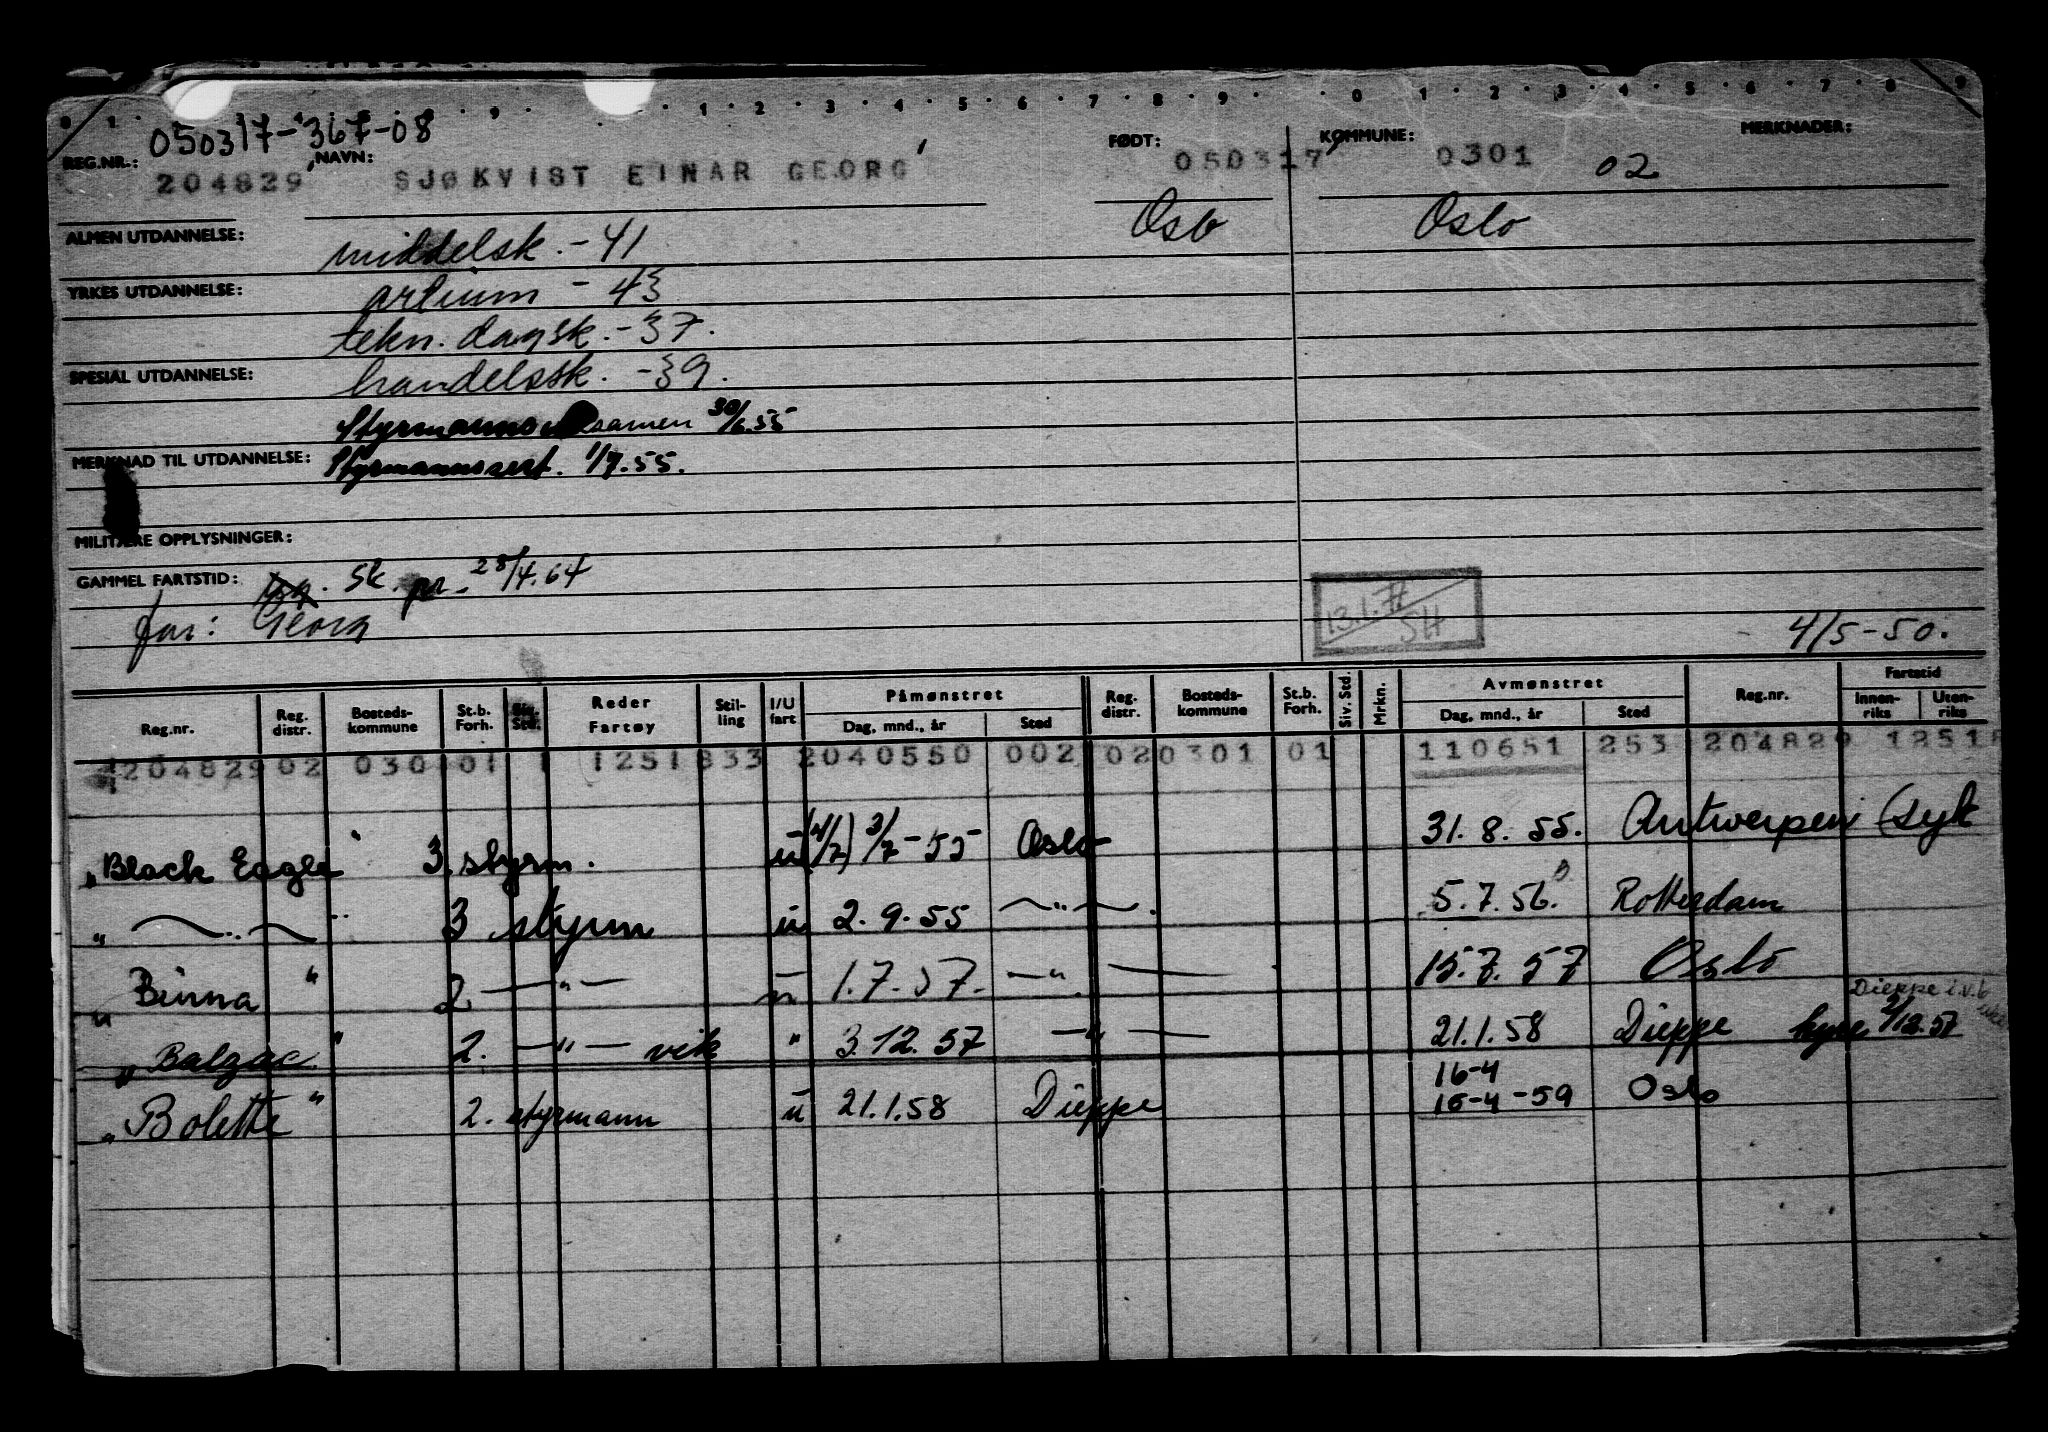 0 1 9 1 2 3 4 5 6 7 8 9 0 1 2 3 4 5 6 7 8 9
050317-367-08
REG.NR.: 204829 NAVN: SJØKVIST EINAR GEORG FØDT: 050317 KOMMUNE: 0301 02 MERKNADER:
Oslo Oslo
ALMEN UTDANNELSE: middelsk. - 41
YRKES UTDANNELSE: artium - 43
tekn. dagsk. - 37.
SPESIAL UTDANNELSE: handelssk. - 39.
Styrmannseksamen 30/6.55
MERKNAD TIL UTDANNELSE: Styrmannssert. 1/7.55.
MILITÆRE OPPLYSNINGER:
GAMMEL FARTSTID: Sk. pr. 28/4.64
far: Georg 13.1.71 SH 4/5-50.
Reg.nr. Reg. distr. Bosteds-kommune St.b. Forh. Siv. Std. Reder Fartøy Stil-ling I/U fart Påmønstret Dag, mnd., år Sted Reg. distr. Bosteds-kommune St.b. Forh. Siv. Std. Mrkn. Avmønstret Dag, mnd., år Sted Reg.nr. Fartstid Innen-riks Uten-riks
204829 02 0301 01 1 1251 833 2 040550 002 02 0301 01 110651 253 204829 1251
"Black Eagle" 3 styrm. u (4/7) 3/7-55 Oslo 31.8.55. Antwerpen (syk
" —"— " 3 styrm u 2.9.55 —"—. 5.7.56. Rotterdam
"Binna" 2. —"— u 1.7.57. —"— 15.7.57 Oslo
Dieppe i.v.b
"Balzac" 2. —"— vik " 3.12.57 —"— 21.1.58 Dieppe hyre 2/12.57
16-4
"Bolette" 2. styrmann u 21.1.58 Dieppe 16-4-59 Oslo